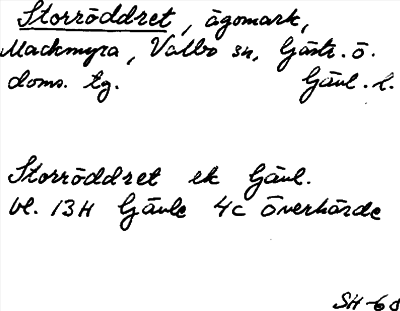 Storröddret, ägomark,
Mackmyra, Valbo sn, Gästr. ö.
doms. tg. Gävl. l.
Storröddret ek Gävl.
bl. 13H Gävle 4c Överhärde
SH-68